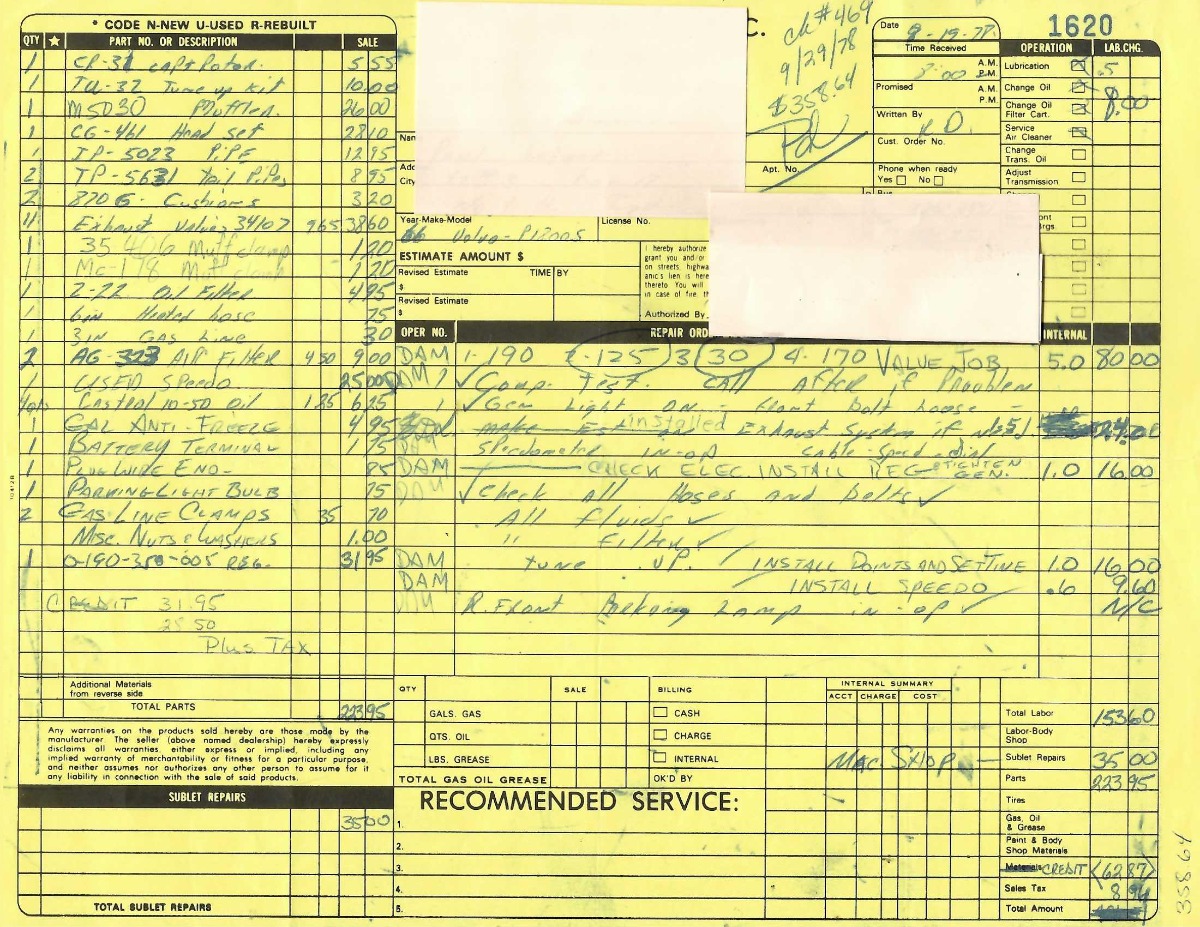 * CODE N-NEW U-USED R-REBUILT
QTY ★ PART NO. OR DESCRIPTION SALE
1 CR-31 cap + Rotor. 5 55
1 TU-32 Tune up kit 10.00
1 M5030 Muffler. 26.00
1 CG-461 Head set 28 10
1 JP-5023 PiPE 12 95
2 JP-5631 Tail Pipes 8 95
2 870 G- Cushions 3 20
4 Exhaust Valves 34107 9 65 38 60
1 35 406 Muff clamp 1 20
1 Mc-178 Muf clamp 1 20
1 2-22 Oil Filter 4 95
1 6in Heated hose 75
1 3in Gas Line 30
2 AG-323 AIR FILTER 4 50 9 00
1 USED SPEEDO 25 00
Castrol 10-50 Oil 1 25 6 25
1 GAL ANTI-FREEZE 4 95
1 BATTERY TERMINAL 1 75
1 PLUG WIRE END- 85
1 PARKING LIGHT BULB 75
2 GAS LINE CLAMPS 35 70
MISC. NUTS & WASHERS 1.00
1 0-190-350-005 REG. 31 95
CREDIT 31.95
25.50
Plus TAX
Additional Materials
from reverse side
TOTAL PARTS 223 95
Any warranties on the products sold hereby are those made by the
manufacturer. The seller (above named dealership) hereby expressly
disclaims all warranties, either express or implied, including any
implied warranty of merchantability or fitness for a particular purpose,
and neither assumes nor authorizes any other person to assume for it
any liability in connection with the sale of said products.
SUBLET REPAIRS
35 00
TOTAL SUBLET REPAIRS
C.
ck #469
9/29/78
$358.64
Pd
Nam
Add
City
Apt. No.
Year-Make-Model
66 Volvo-P1800S
License No.
ESTIMATE AMOUNT $
Revised Estimate TIME BY
$
Revised Estimate
$
I hereby authorize
grant you and/or
on streets, highwa
anic's lien is here
thereto. You will
in case of fire, th
Authorized By
Date 9-19-78
1620
Time Received
A.M.
P.M.
Promised
A.M.
P.M.
Written By
R.D.
Cust. Order No.
Phone when ready
Yes No
Bus
OPERATION LAB.CHG.
Lubrication .5
Change Oil
Change Oil
Filter Cart. 8.00
Service
Air Cleaner
Change
Trans. Oil
Adjust
Transmission
ont
Brgs.
OPER NO. REPAIR ORD INTERNAL
DAM 1-190 2-125 3 30 4-170 VALUE JOB 5.0 80 00
DAM Comp. Test. CALL After if Problem
Gen Light on - Front bolt loose -
installed Exhaust System if
Speedometer in-op cable-speed-
DAM CHECK ELEC. INSTALL REG & TIGHTEN GEN. 1.0 16.00
DAM Check All Hoses and belts
All fluids
" Filter
DAM tune up. INSTALL POINTS AND SET TIME 1.0 16.00
DAM INSTALL SPEEDO .6 9.60
R. Front Parking Lamp in-op N/C
QTY SALE BILLING
GALS. GAS CASH
QTS. OIL CHARGE
LBS. GREASE INTERNAL
TOTAL GAS OIL GREASE OK'D BY
INTERNAL SUMMARY
ACCT CHARGE COST
MAC. SHOP
RECOMMENDED SERVICE:
1.
2.
3.
4.
5.
Total Labor 153 60
Labor-Body
Shop
Sublet Repairs 35 00
Parts 223 95
Tires
Gas, Oil
& Grease
Paint & Body
Shop Materials
Materials CREDIT <62 87>
Sales Tax 8 94
Total Amount
358 64
10412B